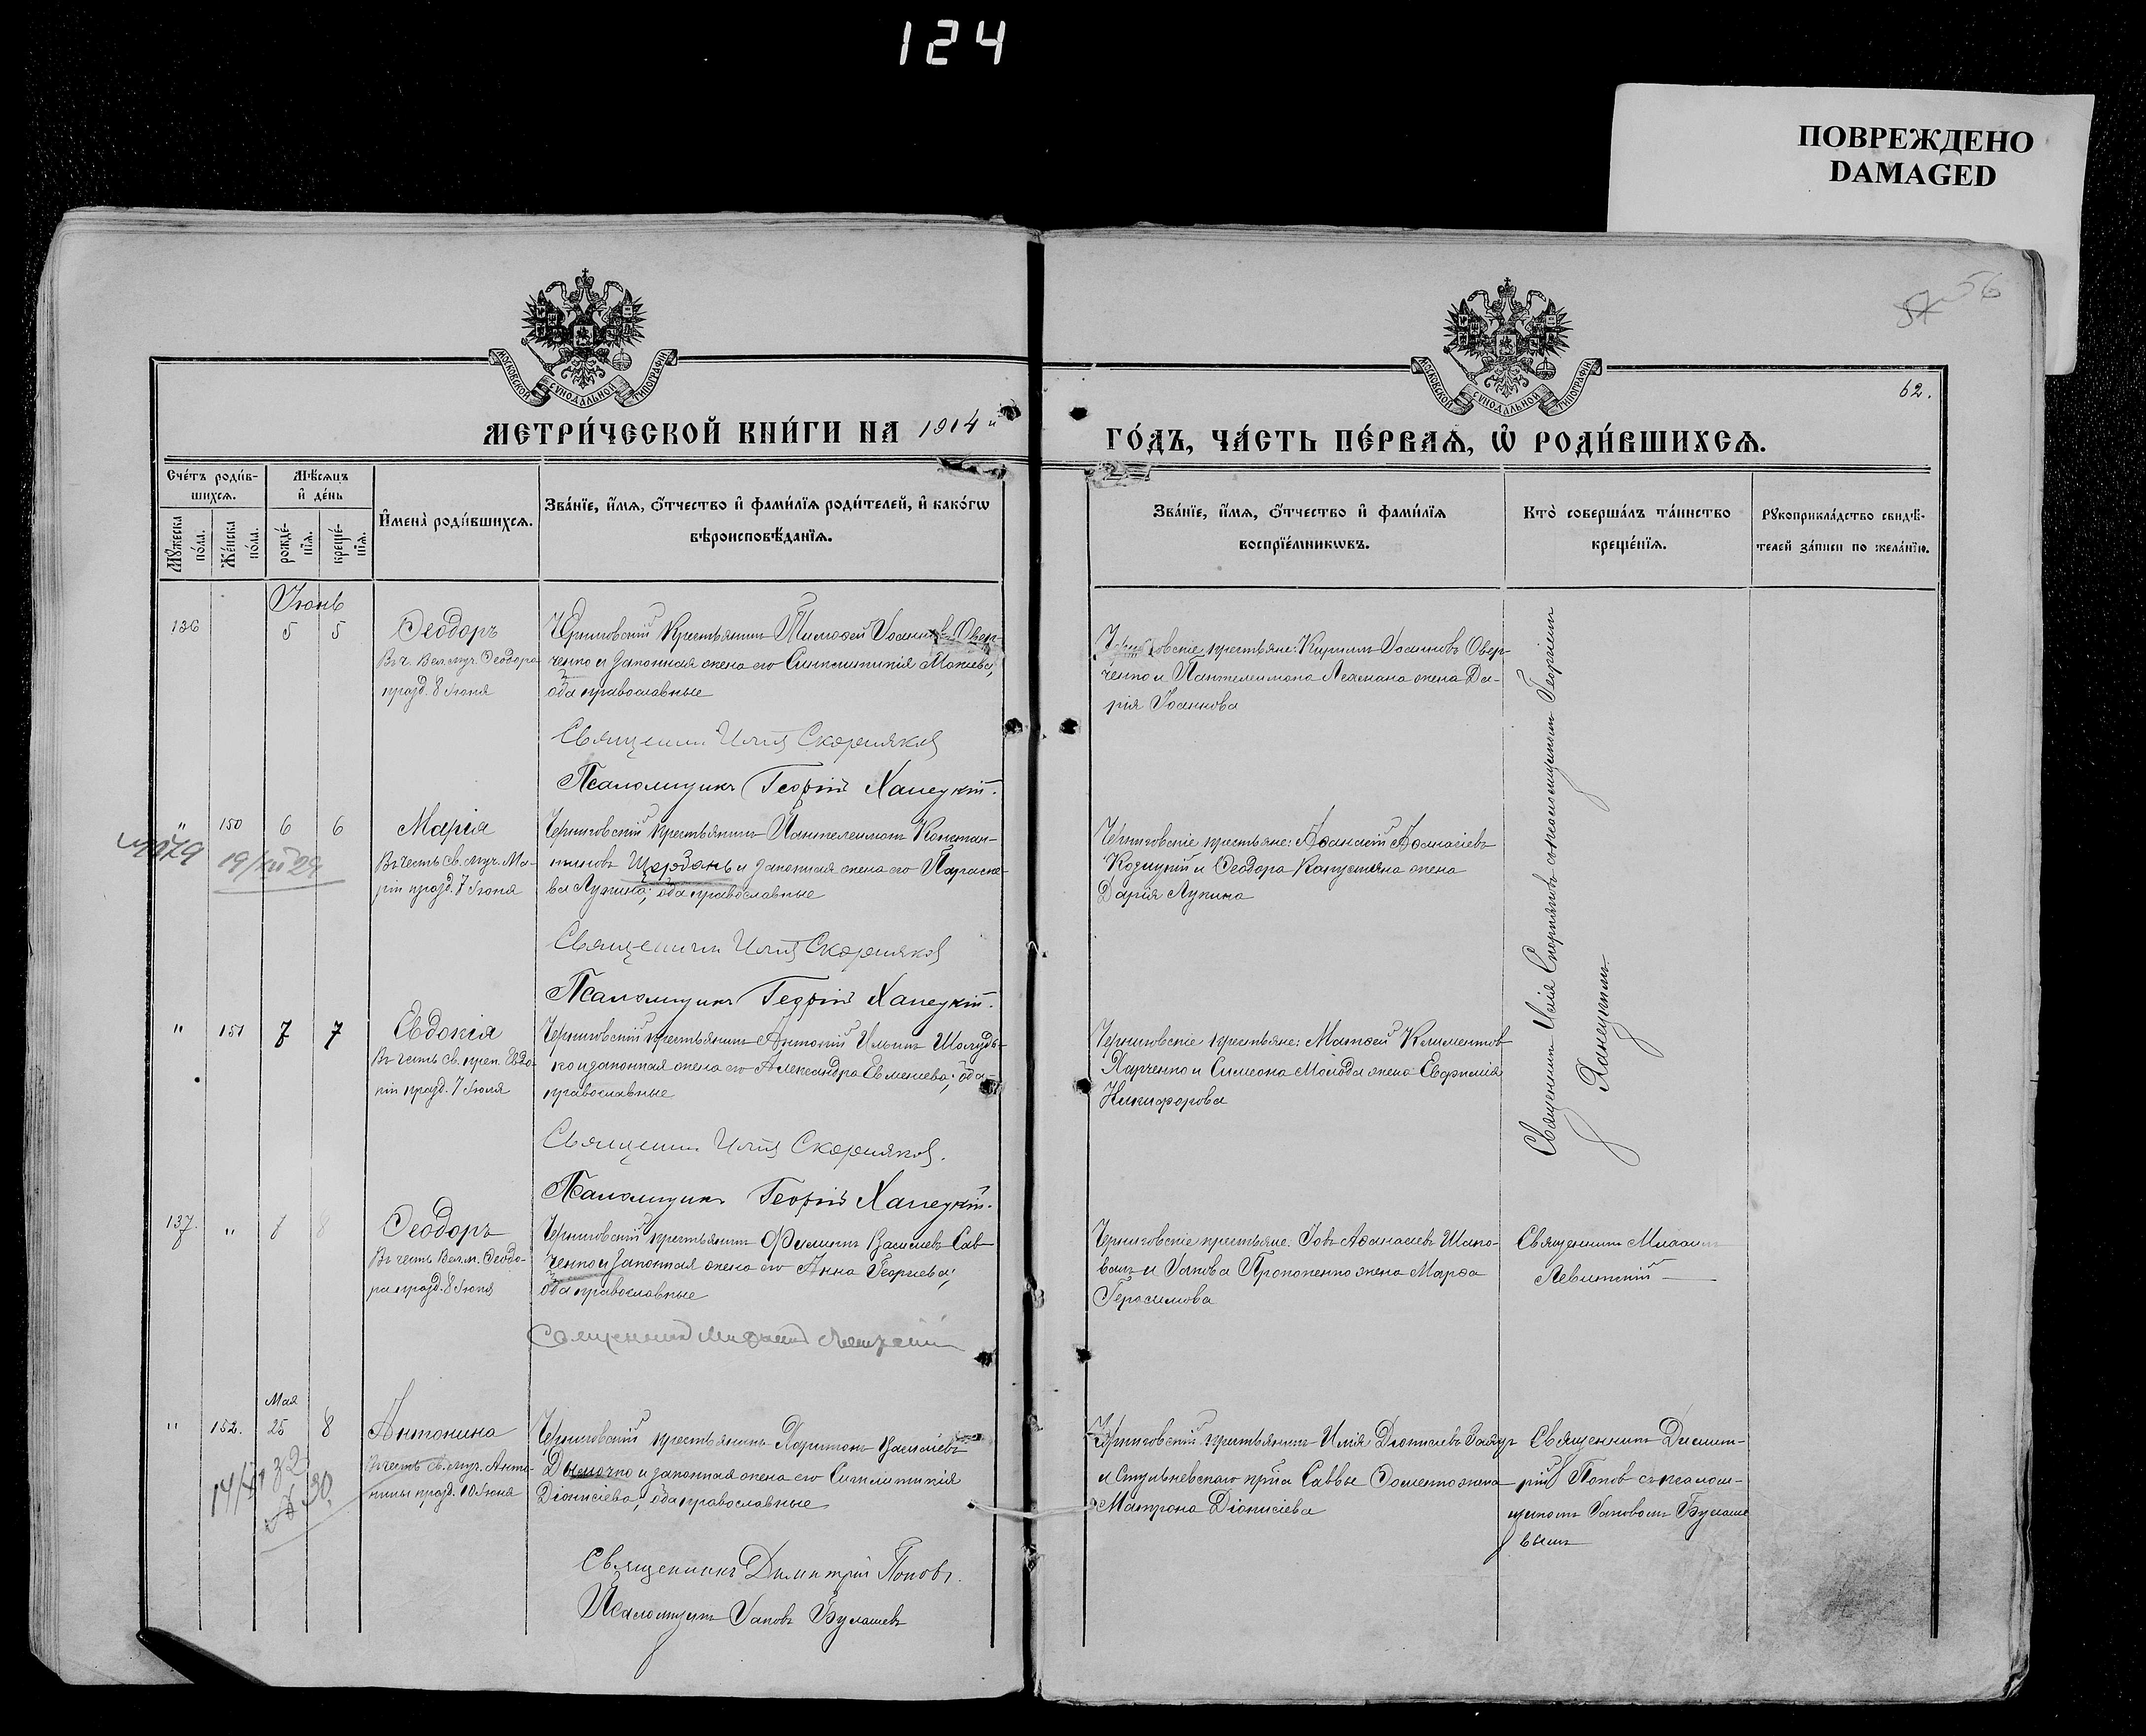 124
ПОВРЕЖДЕНО
DAMAGED
57 56
62.
МОСКОВСКОЙ СѴНОДАЛЬНОЙ ТИПОГРАФІИ
МОСКОВСКОЙ СѴНОДАЛЬНОЙ ТИПОГРАФІИ
МЕТРИ́ЧЕСКОЙ КНИ́ГИ НА 1914 й
ГО́ДЪ, ЧА́СТЬ ПЕ́РВАѦ, Ѡ҆ РОДИ́ВШИХСѦ.
Сче́тъ роди́в-
шихсѧ.
Мѣ́сѧцъ
и҆ де́нь
Мꙋ́жеска
по́ла.
Же́нска
по́ла.
рожде́-
нїѧ.
креще́-
нїѧ.
И҆мена̀ роди́вшихсѧ.
Зва́нїе, и҆́мѧ, ѻ҆́тчество и҆ фами́лїѧ роди́телей, и҆ како́гѡ
вѣроисповѣ́данїѧ.
Зва́нїе, и҆́мѧ, ѻ҆́тчество и҆ фами́лїѧ
воспрїе́мникѡвъ.
Кто̀ соверша́лъ та́инство
креще́нїѧ.
Рꙋкоприкла́дство свидѣ́-
телей за́писи по жела́нїю.
Іюнь
136 5 5 Ѳеодоръ
Въ ч. Вел. муч. Ѳеодора
празд. 8 Іюня
Черниговскій крестьянинъ Тимоѳей Іоанновъ Овер-
ченко и законная жена его Синклитикія Мокіева,
оба православные
Священникъ Илія Скорняковъ
Псаломщикъ Георгій Ханецкій.
Черниговскіе крестьяне: Кириллъ Іоанновъ Овер-
ченко и Пантелеимона Лежмана жена Да-
рія Іоаннова
Священникъ Илія Скорняковъ съ псаломщикомъ Георгіемъ
Ханецкимъ.
" 150 6 6 Марія
19/XII 29
Въ честь св. муч. Ма-
ріи празд. 7 Іюня
Черниговскій крестьянинъ Пантелеимонъ Констан-
тиновъ Щербань и законная жена его Параске-
ва Лукина; оба православные
Священникъ Илія Скорняковъ
Псаломщикъ Георгій Ханецкій.
Черниговскіе крестьяне: Аѳанасій Аѳанасіевъ
Козицкій и Ѳеодора Капустяна жена
Дарія Лукина
" 151 7 7 Евдокія
Въ честь св. преп. Евдо-
кіи празд. 7 Іюля
Черниговскій крестьянинъ Антоній Ильинъ Шолудь-
ко и законная жена его Александра Евменіева; оба
православные
Священникъ Илія Скорняковъ.
Псаломщикъ Георгій Ханецкій.
Черниговскіе крестьяне: Матѳей Климентовъ
Харченко и Симеона Молода жена Евфимія
Никифорова
137. " 8 8 Ѳеодоръ
Въ честь Вел. м. Ѳеодо-
ра празд. 8 Іюня
Черниговскій крестьянинъ Филиппъ Василіевъ Сав-
ченко и законная жена его Анна Георгіева;
оба православные
Священникъ Левитскій
Черниговскіе крестьяне: Іовъ Аѳанасіевъ Шапо-
валъ и Іакова Прокопенко жена Марѳа
Герасимова
Священникъ
Левитскій
Мая
" 152. 25 8 Антонина
30
Въ честь св. муч. Анто-
нины празд. 10 Іюня
Черниговскій крестьянинъ Харитонъ Василіевъ
и законная жена его Синклитикія
Діонисіева; оба православные
Священникъ Димитрій Поповъ.
Псаломщикъ Іаковъ Булашевъ
Черниговскій крестьянинъ Илія Діонисіевъ Заяцъ
и Саввы жена
Матрона Діонисіева
Священникъ Димит-
рій Поповъ съ псалом-
щикомъ Іаковомъ Булаше
вымъ